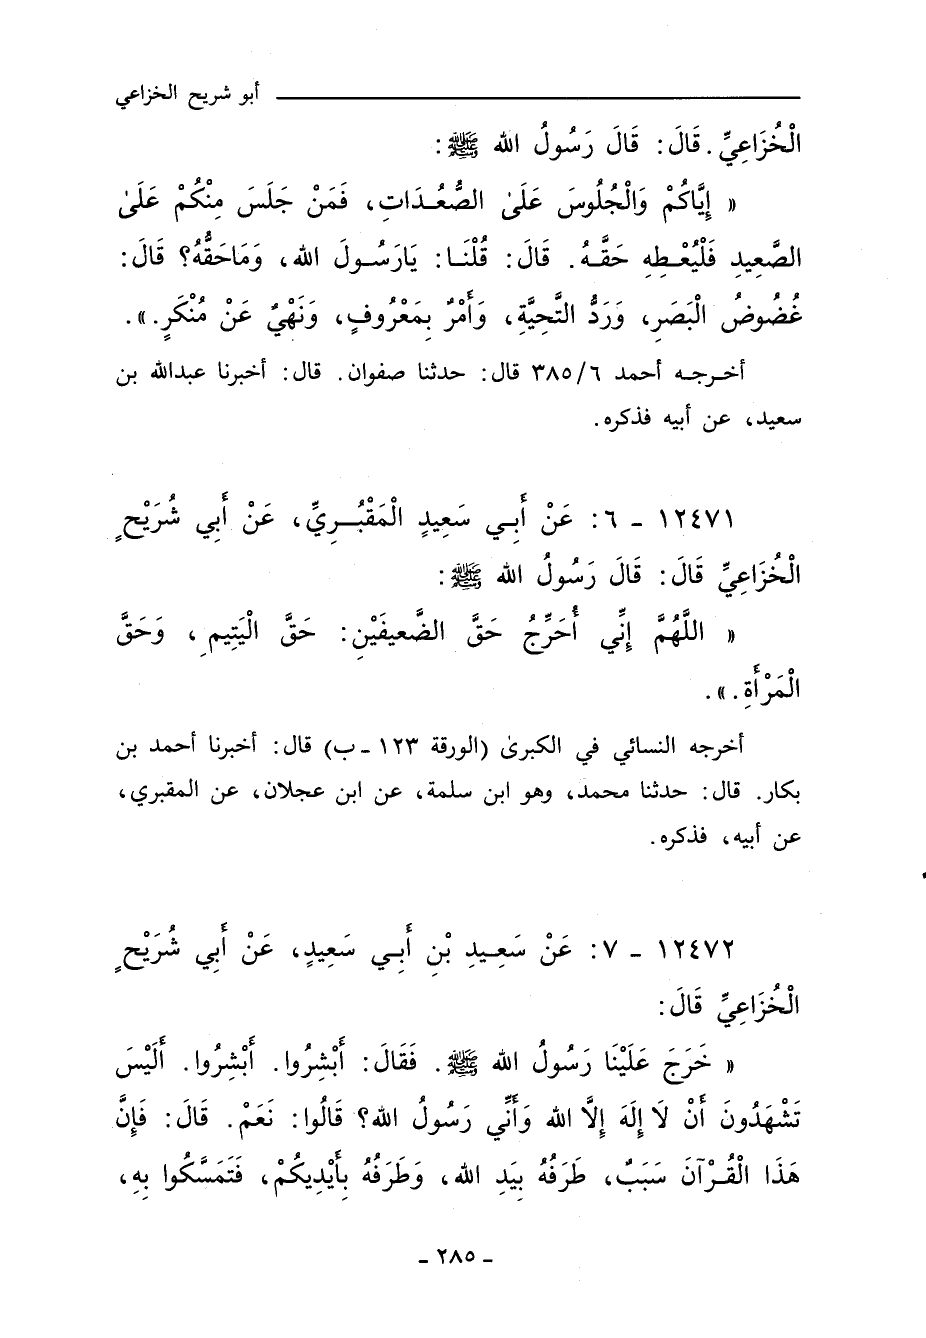 أبو شريح الخزاعي
الْخُزَاعِيِّ. قَالَ: قَالَ رَسُولُ الله ﷺ:
« إِيَّاكُمْ وَالْجُلُوسَ عَلَىٰ الصُّعُدَاتِ، فَمَنْ جَلَسَ مِنْكُمْ عَلَىٰ
الصَّعِيدِ فَلْيُعْطِهِ حَقَّهُ. قَالَ: قُلْنَا: يَارَسُولَ الله، وَمَاحَقُّهُ؟ قَالَ:
غُضُوضُ الْبَصَرِ، وَرَدُّ التَّحِيَّةِ، وَأَمْرٌ بِمَعْرُوفٍ، وَنَهْيٌ عَنْ مُنْكَرٍ.».
أخرجه أحمد ٣٨٥/٦ قال: حدثنا صفوان. قال: أخبرنا عبدالله بن
سعيد، عن أبيه فذكره.
١٢٤٧١ - ٦: عَنْ أَبِي سَعِيدٍ الْمَقْبُرِيِّ، عَنْ أَبِي شُرَيْحٍ
الْخُزَاعِيِّ قَالَ: قَالَ رَسُولُ الله ﷺ:
« اللَّهُمَّ إِنِّي أُحَرِّجُ حَقَّ الضَّعِيفَيْنِ: حَقَّ الْيَتِيمِ، وَحَقَّ
الْمَرْأَةِ.».
أخرجه النسائي في الكبرىٰ (الورقة ١٢٣ - ب) قال: أخبرنا أحمد بن
بكار. قال: حدثنا محمد، وهو ابن سلمة، عن ابن عجلان، عن المقبري،
عن أبيه، فذكره.
١٢٤٧٢ - ٧: عَنْ سَعِيدِ بْنِ أَبِي سَعِيدٍ، عَنْ أَبِي شُرَيْحٍ
الْخُزَاعِيِّ قَالَ:
« خَرَجَ عَلَيْنَا رَسُولُ الله ﷺ. فَقَالَ: أَبْشِرُوا. أَبْشِرُوا. أَلَيْسَ
تَشْهَدُونَ أَنْ لَا إِلَهَ إِلَّا الله وَأَنِّي رَسُولُ الله؟ قَالُوا: نَعَمْ. قَالَ: فَإِنَّ
هَذَا الْقُرْآنَ سَبَبٌ، طَرَفُهُ بِيَدِ الله، وَطَرَفُهُ بِأَيْدِيكُمْ، فَتَمَسَّكُوا بِهِ،
- ٢٨٥ -